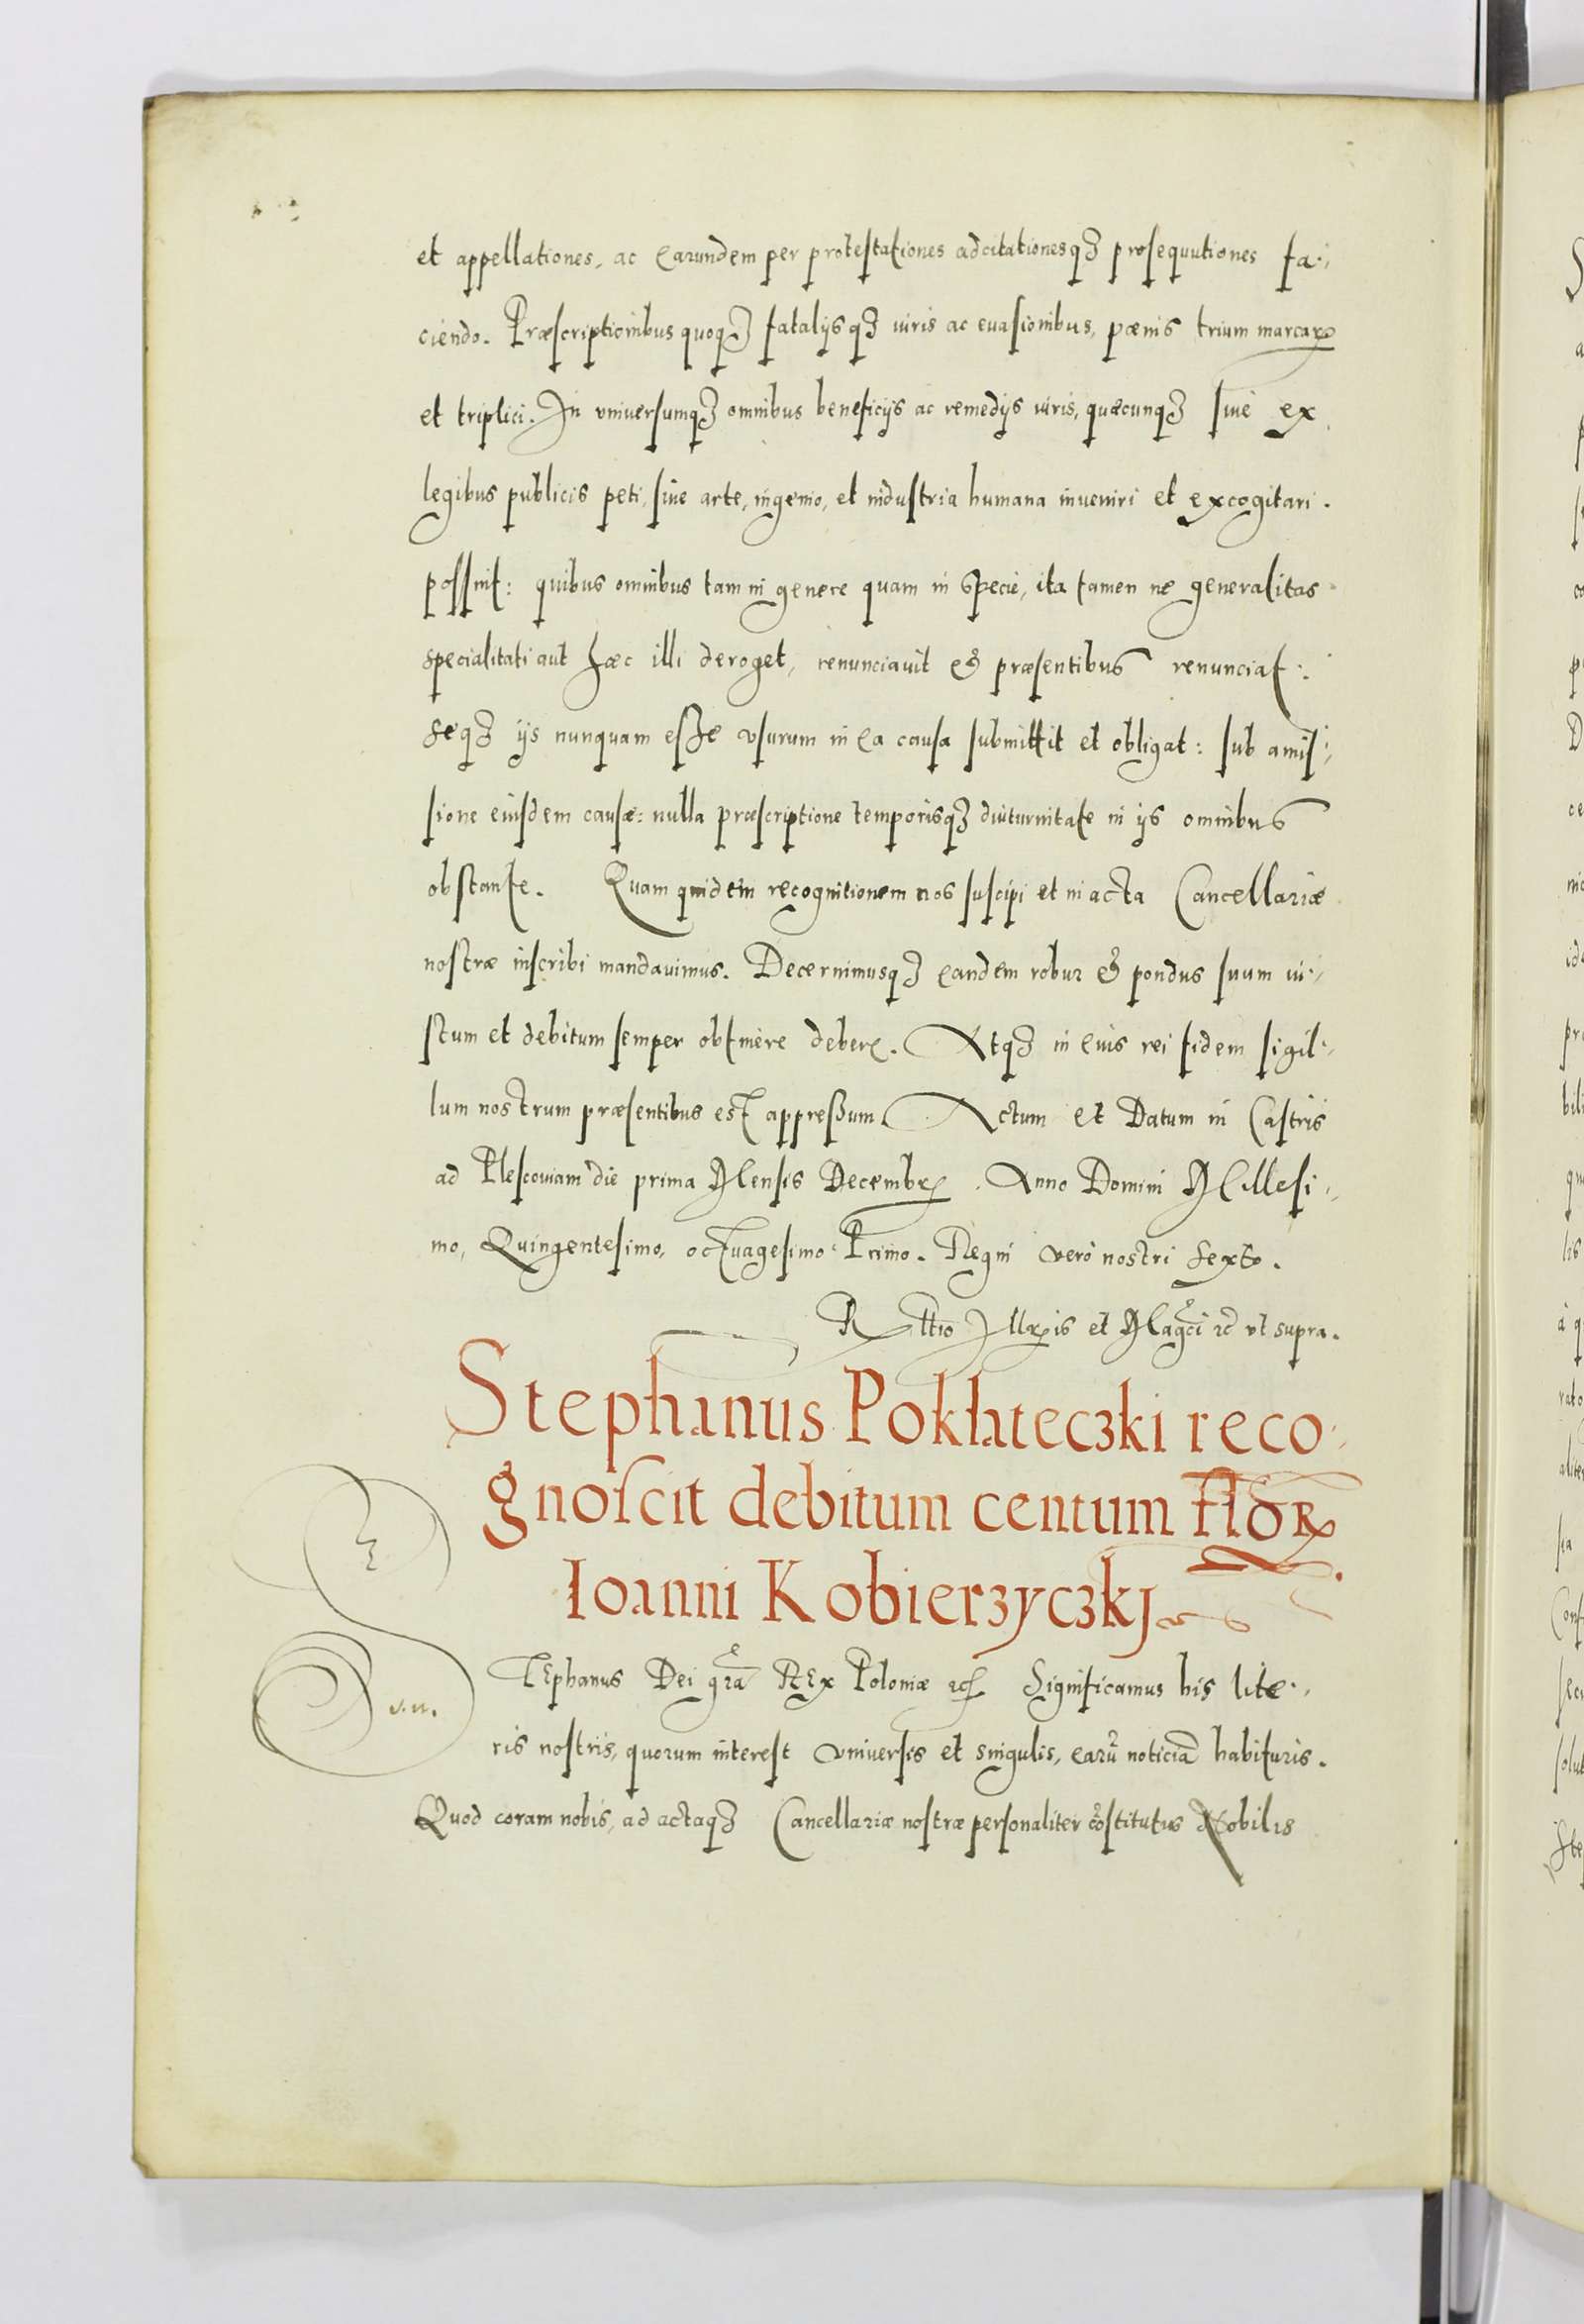 et appellationes, ac earundem per protestationes adcitationesqꝫ prosequutiones fa-
ciendo. Præscriptionibus quoqꝫ fatalijsqꝫ iuris ac euasionibus, pœnis trium marcarꝝ
et triplici. In vniversumqꝫ omnibus beneficijs ac remedijs iuris, quæcunqꝫ siue ex
legibus publicis peti, siue arte, ingenio, et industria humana inveniri et excogitari.
possint: quibus omnibus tam in genere quam in specie, ita tamen ne generalitas
specialitati aut hæc illi deroget, renunciavit et præsentibus renunciat:
seqꝫ ijs nunquam esse vsurum in ea causa submittit et obligat: sub amis-
sione eiusdem causæ: nulla præscriptione temporisqꝫ diuturnitate in ijs omnibus
obstante. Quam quidem recognitionem nos suscipi et in acta Cancellariæ
nostræ inscribi mandauimus. Decernimusqꝫ eandem robur et pondus suum iu-
stum et debitum semper obtinere debere. Atqꝫ in eius rei fidem sigil-
lum nostrum præsentibus est appressum. Actum et Datum in Castris
ad Plescouiam die prima Mensis Decembrꝭ. Anno Domini Millesi-
mo, Quingentesimo, octuagesimo Primo. Regni vero nostri sexto.
Rltio Illrꝭis et Magci ꝛc vt supra.
Stephanus Pokłateczki reco-
gnoscit debitum centum flor
Ioanni Kobierzyczkj
STEphanus Dei gra REx Poloniæ ꝛc Significamus his lite-
ris nostris, quorum interest vniversis et singulis, earū noticiā habituris.
Quod coram nobis, ad actaqꝫ Cancellariæ nostræ personaliter cōstitutus Nobilis